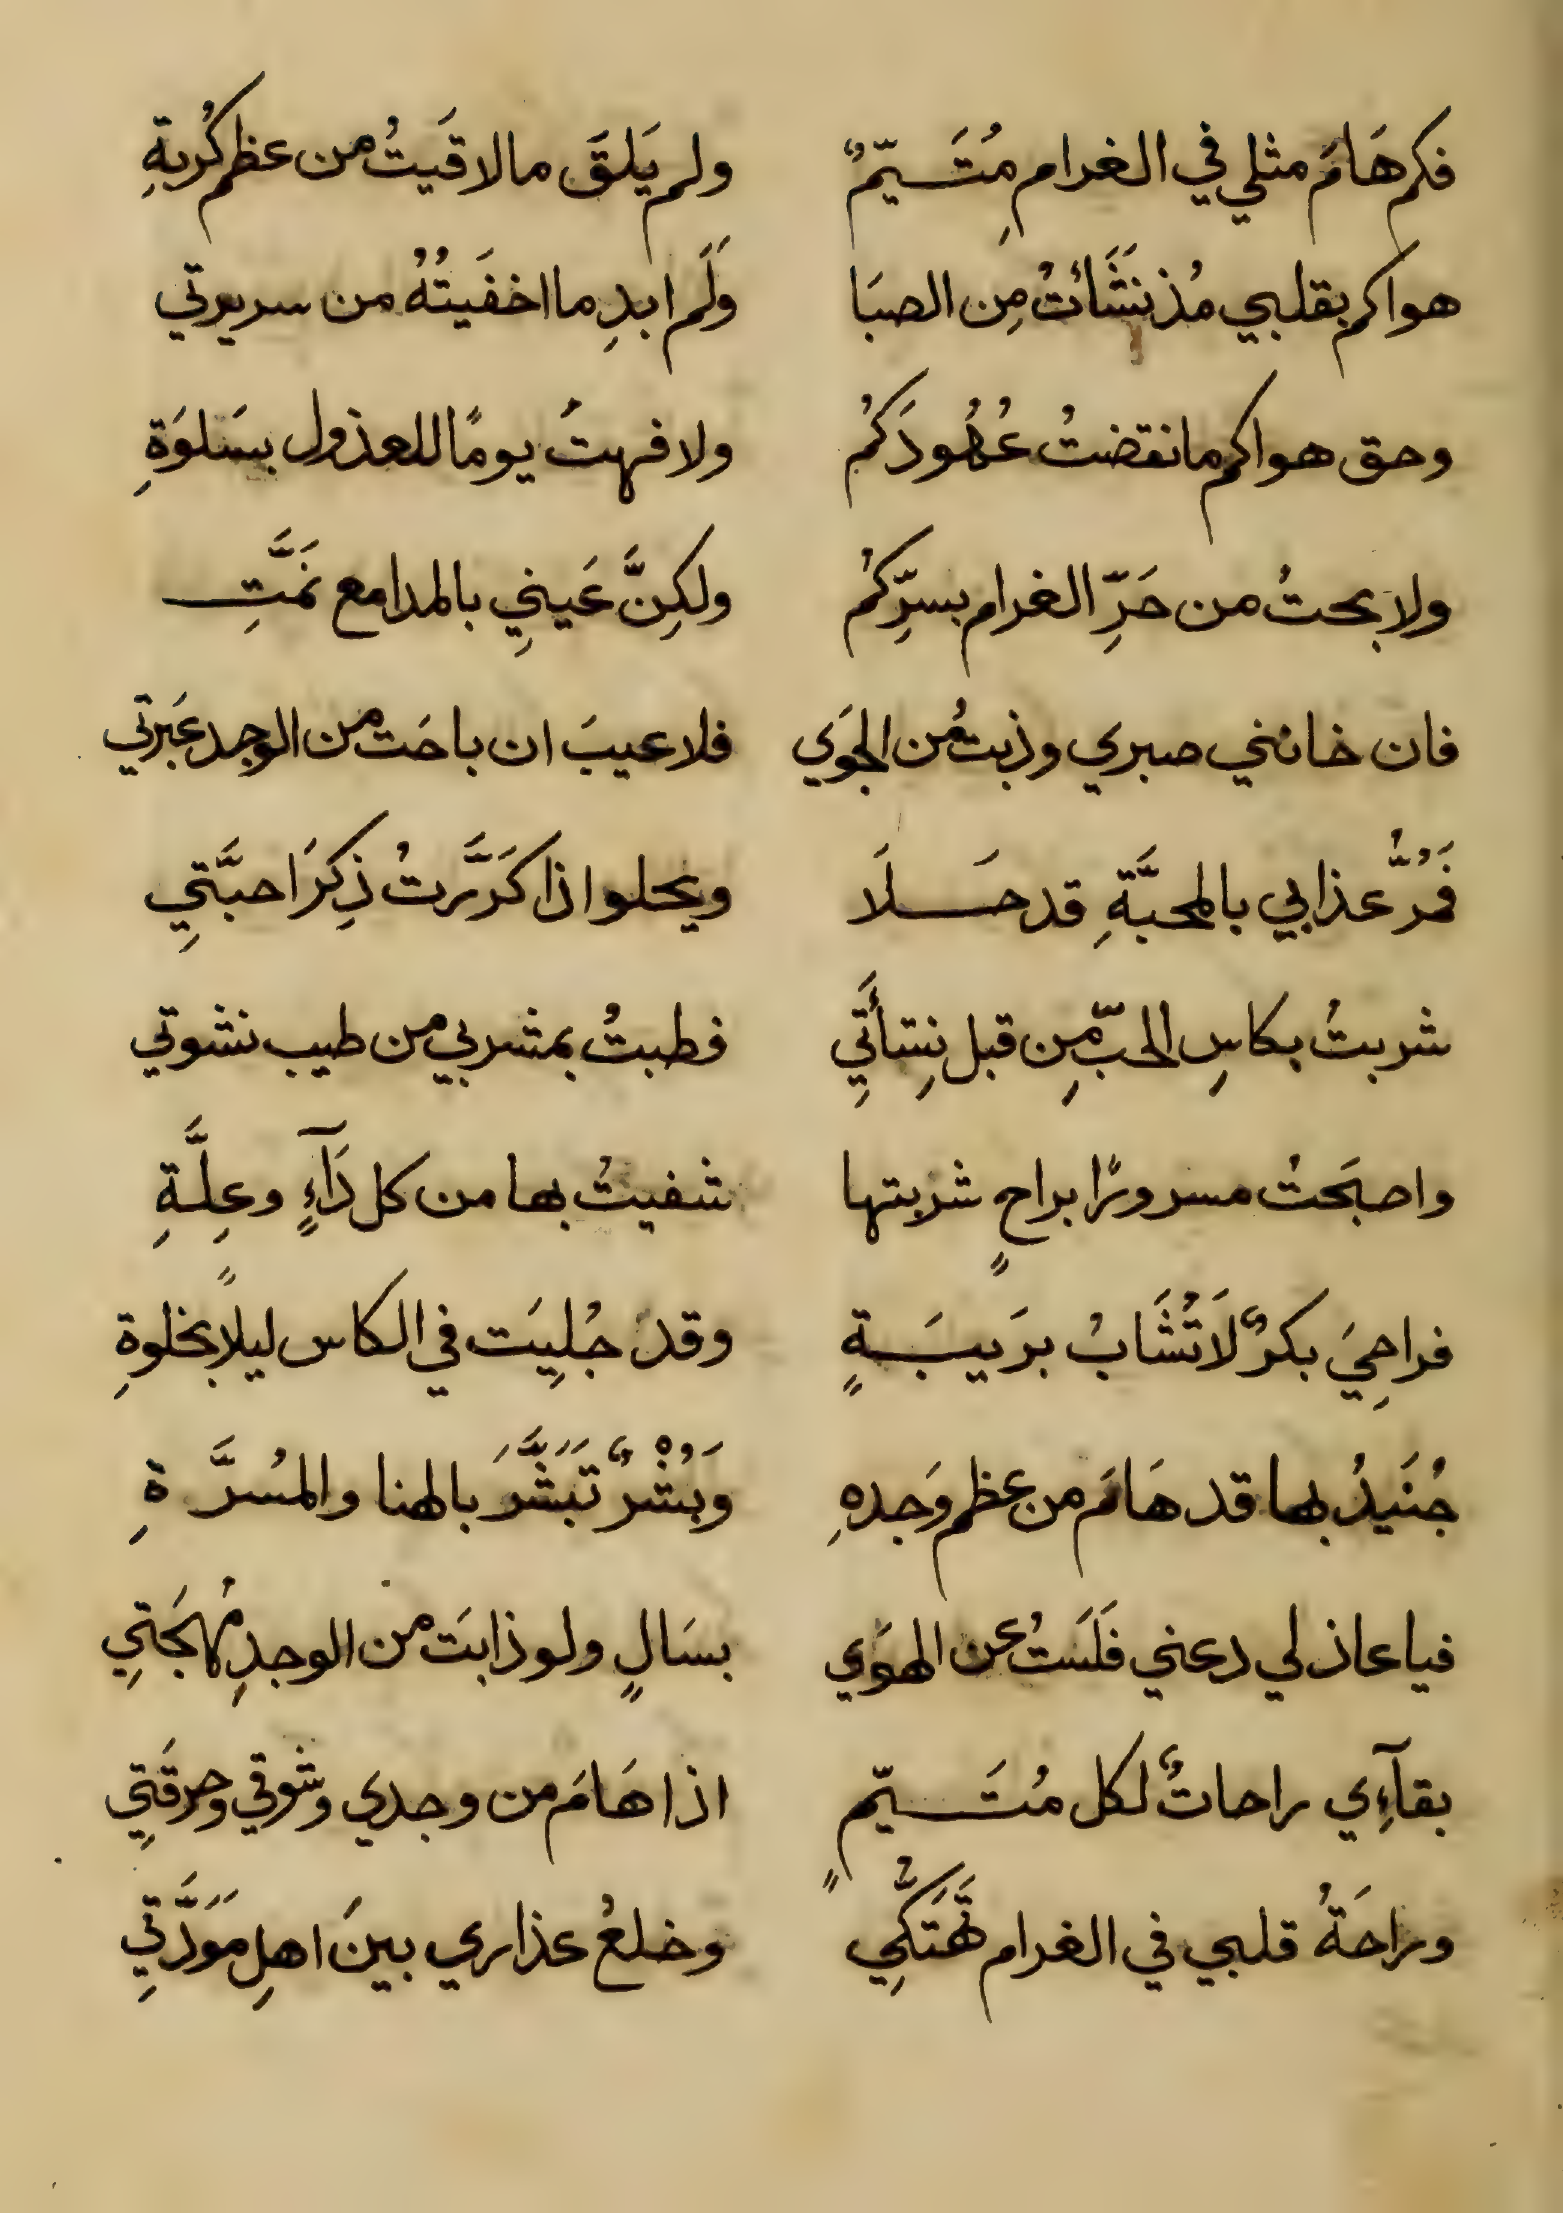 فكم هَامَ مثلي في الغرام مُتَيّمٌ ولم يَلقَ مالاقَيتُ من عظم كُربةِ
هواكم بقلبي مُذ نَشَأتُ مِن الصبَا وَلَم ابدِ ما اخفَيتُهُ من سريرتي
وحق هواكم مانقضتُ عُهُودَكُم ولا فهتُ يومًا للعذول بسَلوَةِ
ولا بحتُ من حَرِّ الغرام بسرِّكُم ولكِنَّ عَيني بالمدامع نَمَّتِ
فان خانني صبري وذبتُ من الجوَي فلا عيبَ ان باحَت من الوجد عَبرَتي
فَمُرُّ عذابي بالمحبَّةِ قد حَلَا ويحلوا اذا كَرَّرتُ ذِكرَ احبَّتِي
شربتُ بكاسِ الحبّ مِن قبل نِشأَتِي فطبتُ بمشربي من طيب نشوتي
واصبَحتُ مسرورًا براحٍ شربتها شفيتُ بها من كل دَآءٍ وعِلَّةِ
فراحِيَ بكرٌ لَا تُشَابُ برَيبَةٍ وقد جُلِيَت في الكاس ليلاً بخلوةِ
جُنَيدُ بها قد هَامَ من عظم وَجدهِ وَبُشْرٌ تَبَشَّرَ بالهنا والمسُرَّةِ
فيا عاذلي دعني فَلَستُ عن الهوَي بسَالٍ ولو ذابَت من الوجدِ مُهجَتِي
بقآءِي راحاتٌ لكل مُتَيّمٍ اذا هَامَ من وجدي وشوقي وحرقَتِي
وراحَةُ قلبي في الغرام تَهَتَكُّي وخلعُ عذاري بينَ اهلِ مَوَدَّتِي